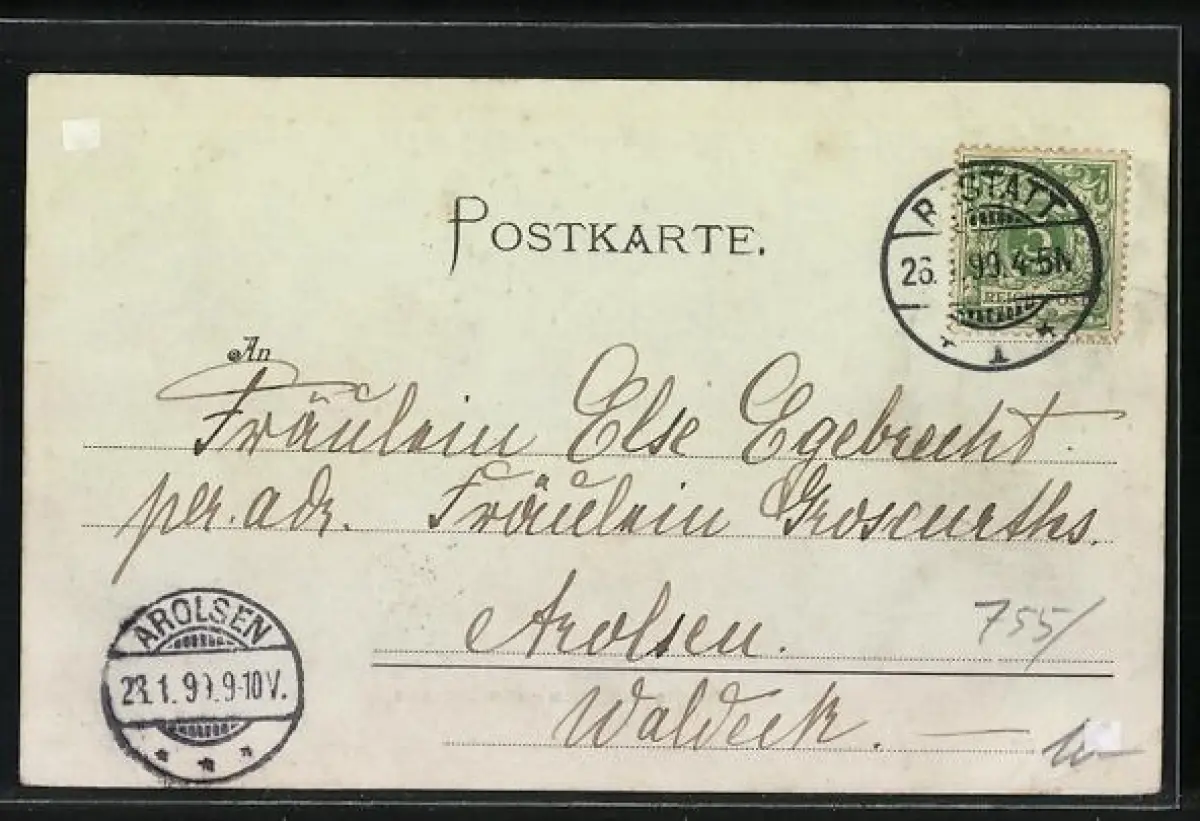 POSTKARTE.
R STATT
26. 99. 4-5N
5
REICHSPOST
1
An
Fräulein Else Egebrecht.
per. adr. Fräulein Groscurths.
Arolsen.
755/
Waldeck. —
AROLSEN
1. 9 9-10V.